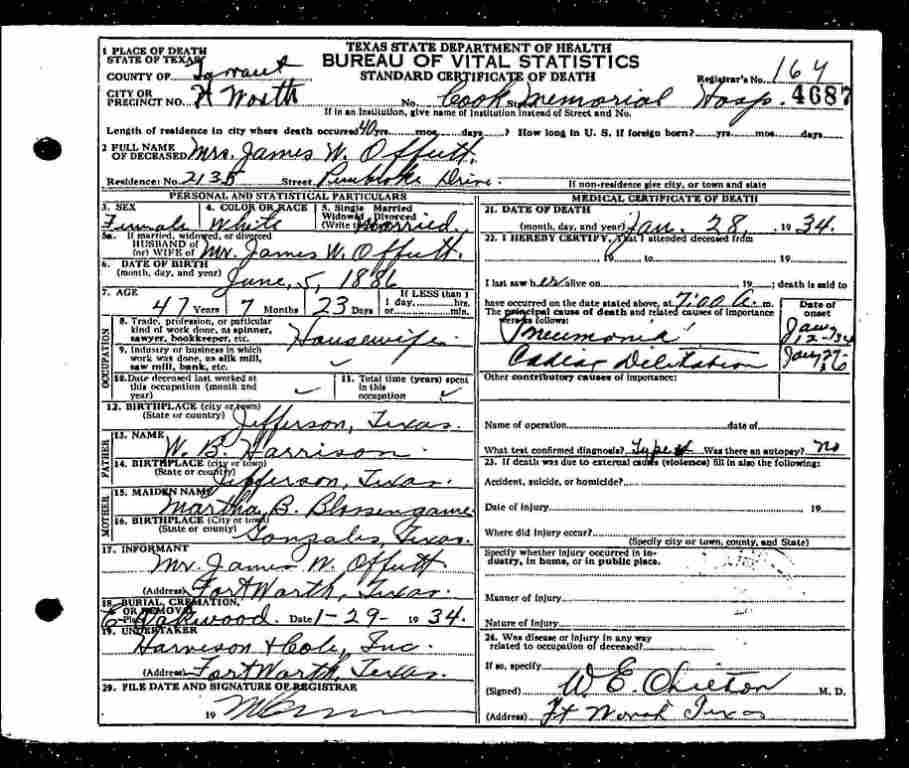 TEXAS STATE DEPARTMENT OF HEALTH
BUREAU OF VITAL STATISTICS
STANDARD CERTIFICATE OF DEATH
1 PLACE OF DEATH
STATE OF TEXAS
COUNTY OF Tarrant
Registrar's No. 164
CITY OR PRECINCT NO. Ft Worth No. Cook St. Memorial Hosp. 4687
If in an Institution, give name of Institution instead of Street and No.
Length of residence in city where death occurred 40 yrs. mos. days ? How long in U. S. if foreign born? yrs. mos. days
2 FULL NAME OF DECEASED Mrs. James W. Offutt.
Residence: No. 2135 Street Pembroke Drive. If non-residence give city, or town and state
PERSONAL AND STATISTICAL PARTICULARS
3. SEX Female
4. COLOR OR RACE White
5. Single Married Widowed Divorced (Write the word) Married.
5a. If married, widowed, or divorced HUSBAND of (or) WIFE of Mr. James W. Offutt.
6. DATE OF BIRTH (month, day, and year) June, 5, 1886
7. AGE 47 Years 7 Months 23 Days If LESS than 1 day, hrs. or min.
OCCUPATION
8. Trade, profession, or particular kind of work done, as spinner, sawyer, bookkeeper, etc. Housewife.
9. Industry or business in which work was done, as silk mill, saw mill, bank, etc. ✓
10. Date deceased last worked at this occupation (month and year) ✓
11. Total time (years) spent in this occupation ✓
12. BIRTHPLACE (city or town) (State or country) Jefferson, Texas.
FATHER
13. NAME W. B. Harrison.
14. BIRTHPLACE (city or town) (State or country) Jefferson, Texas.
MOTHER
15. MAIDEN NAME Martha B. Blossengame
16. BIRTHPLACE (City or town) (State or country) Gonzales, Texas.
17. INFORMANT Mr. James W. Offutt
(Address) Fort Worth, Texas.
18. BURIAL, CREMATION, OR REMOVAL
Place E Oakwood. Date 1-29- 1934.
19. UNDERTAKER Harveson & Cole, Inc.
(Address) Fort Worth, Texas.
20. FILE DATE AND SIGNATURE OF REGISTRAR
19
MEDICAL CERTIFICATE OF DEATH
21. DATE OF DEATH
(month, day, and year) Jan. 28, 1934.
22. I HEREBY CERTIFY, That I attended deceased from
19 to 19
I last saw her alive on 19 ; death is said to
have occurred on the date stated above, at 7:00 A. m.
The principal cause of death and related causes of importance were as follows:
Date of onset
Pneumonia Jany 12-34
Cadiac Dilitation Jany 26
Other contributory causes of importance:
Name of operation date of
What test confirmed diagnosis? Was there an autopsy? No
23. If death was due to external causes (violence) fill in also the following:
Accident, suicide, or homicide?
Date of Injury 19
Where did injury occur?
(Specify city or town, county, and State)
Specify whether injury occurred in industry, in home, or in public place.
Manner of Injury
Nature of Injury
24. Was disease or injury in any way related to occupation of deceased?
If so, specify
(Signed) W. E. Chilton M. D.
(Address) Ft Worth Texas